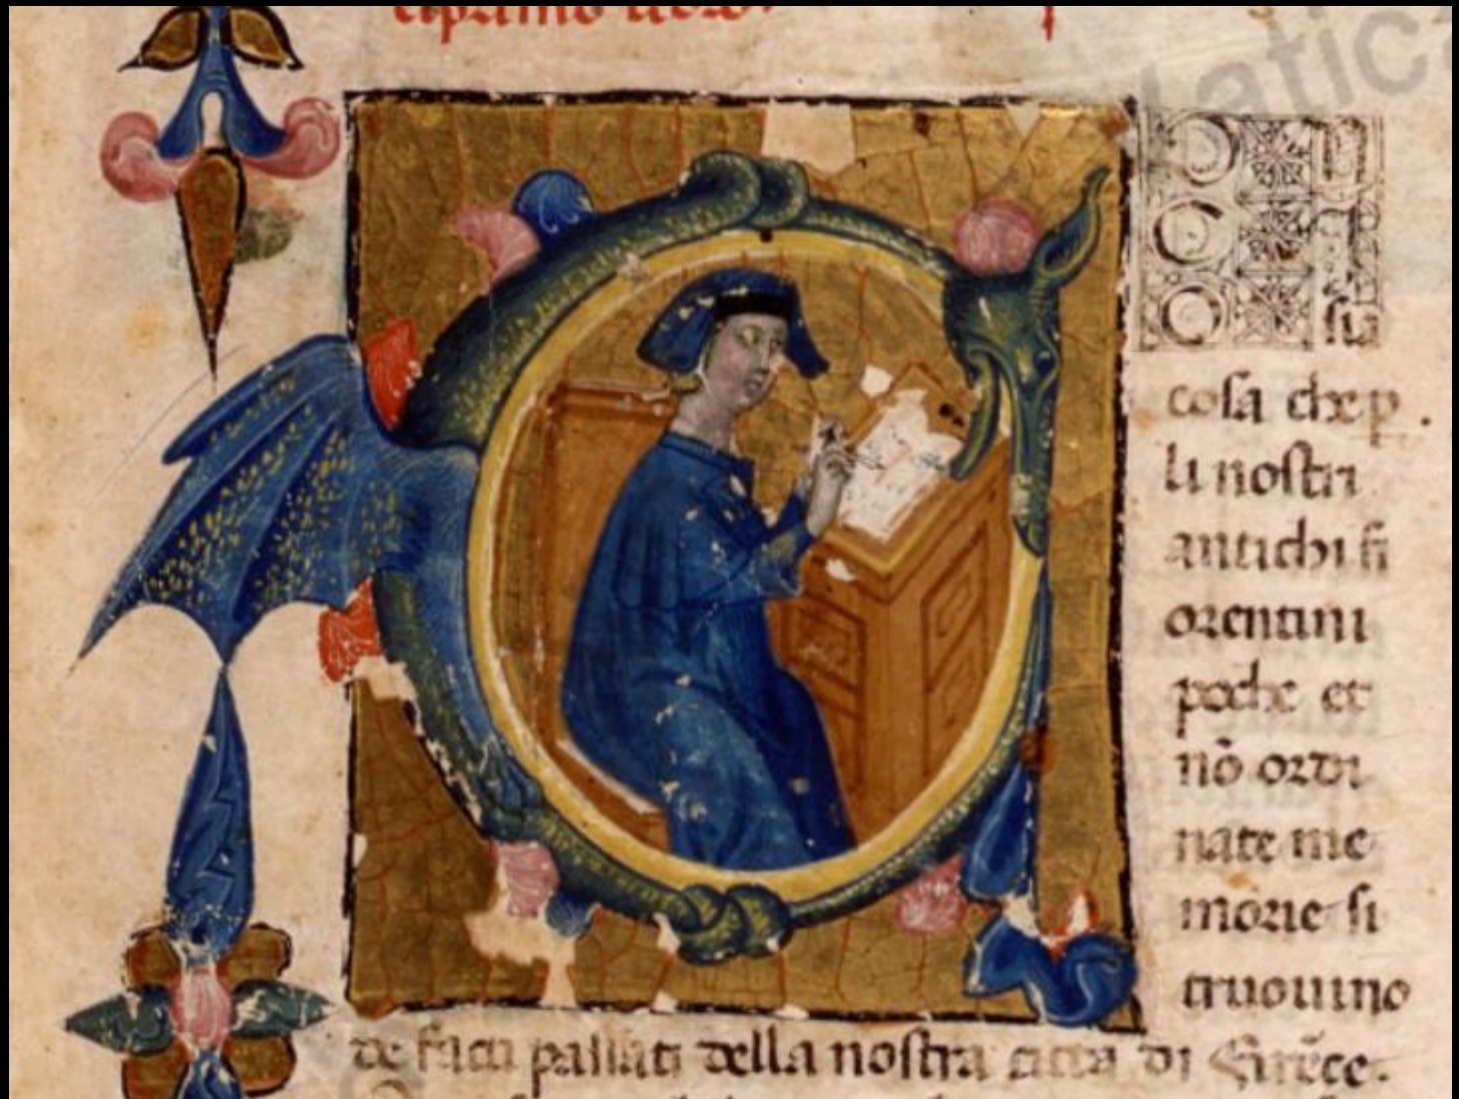 primo libro.
sia
cosa che p
li nostri
antichi fi
orentini
poche et
nō ordi
nate me
morie si
truouino
de facti passati della nostra citta di Firēçe.